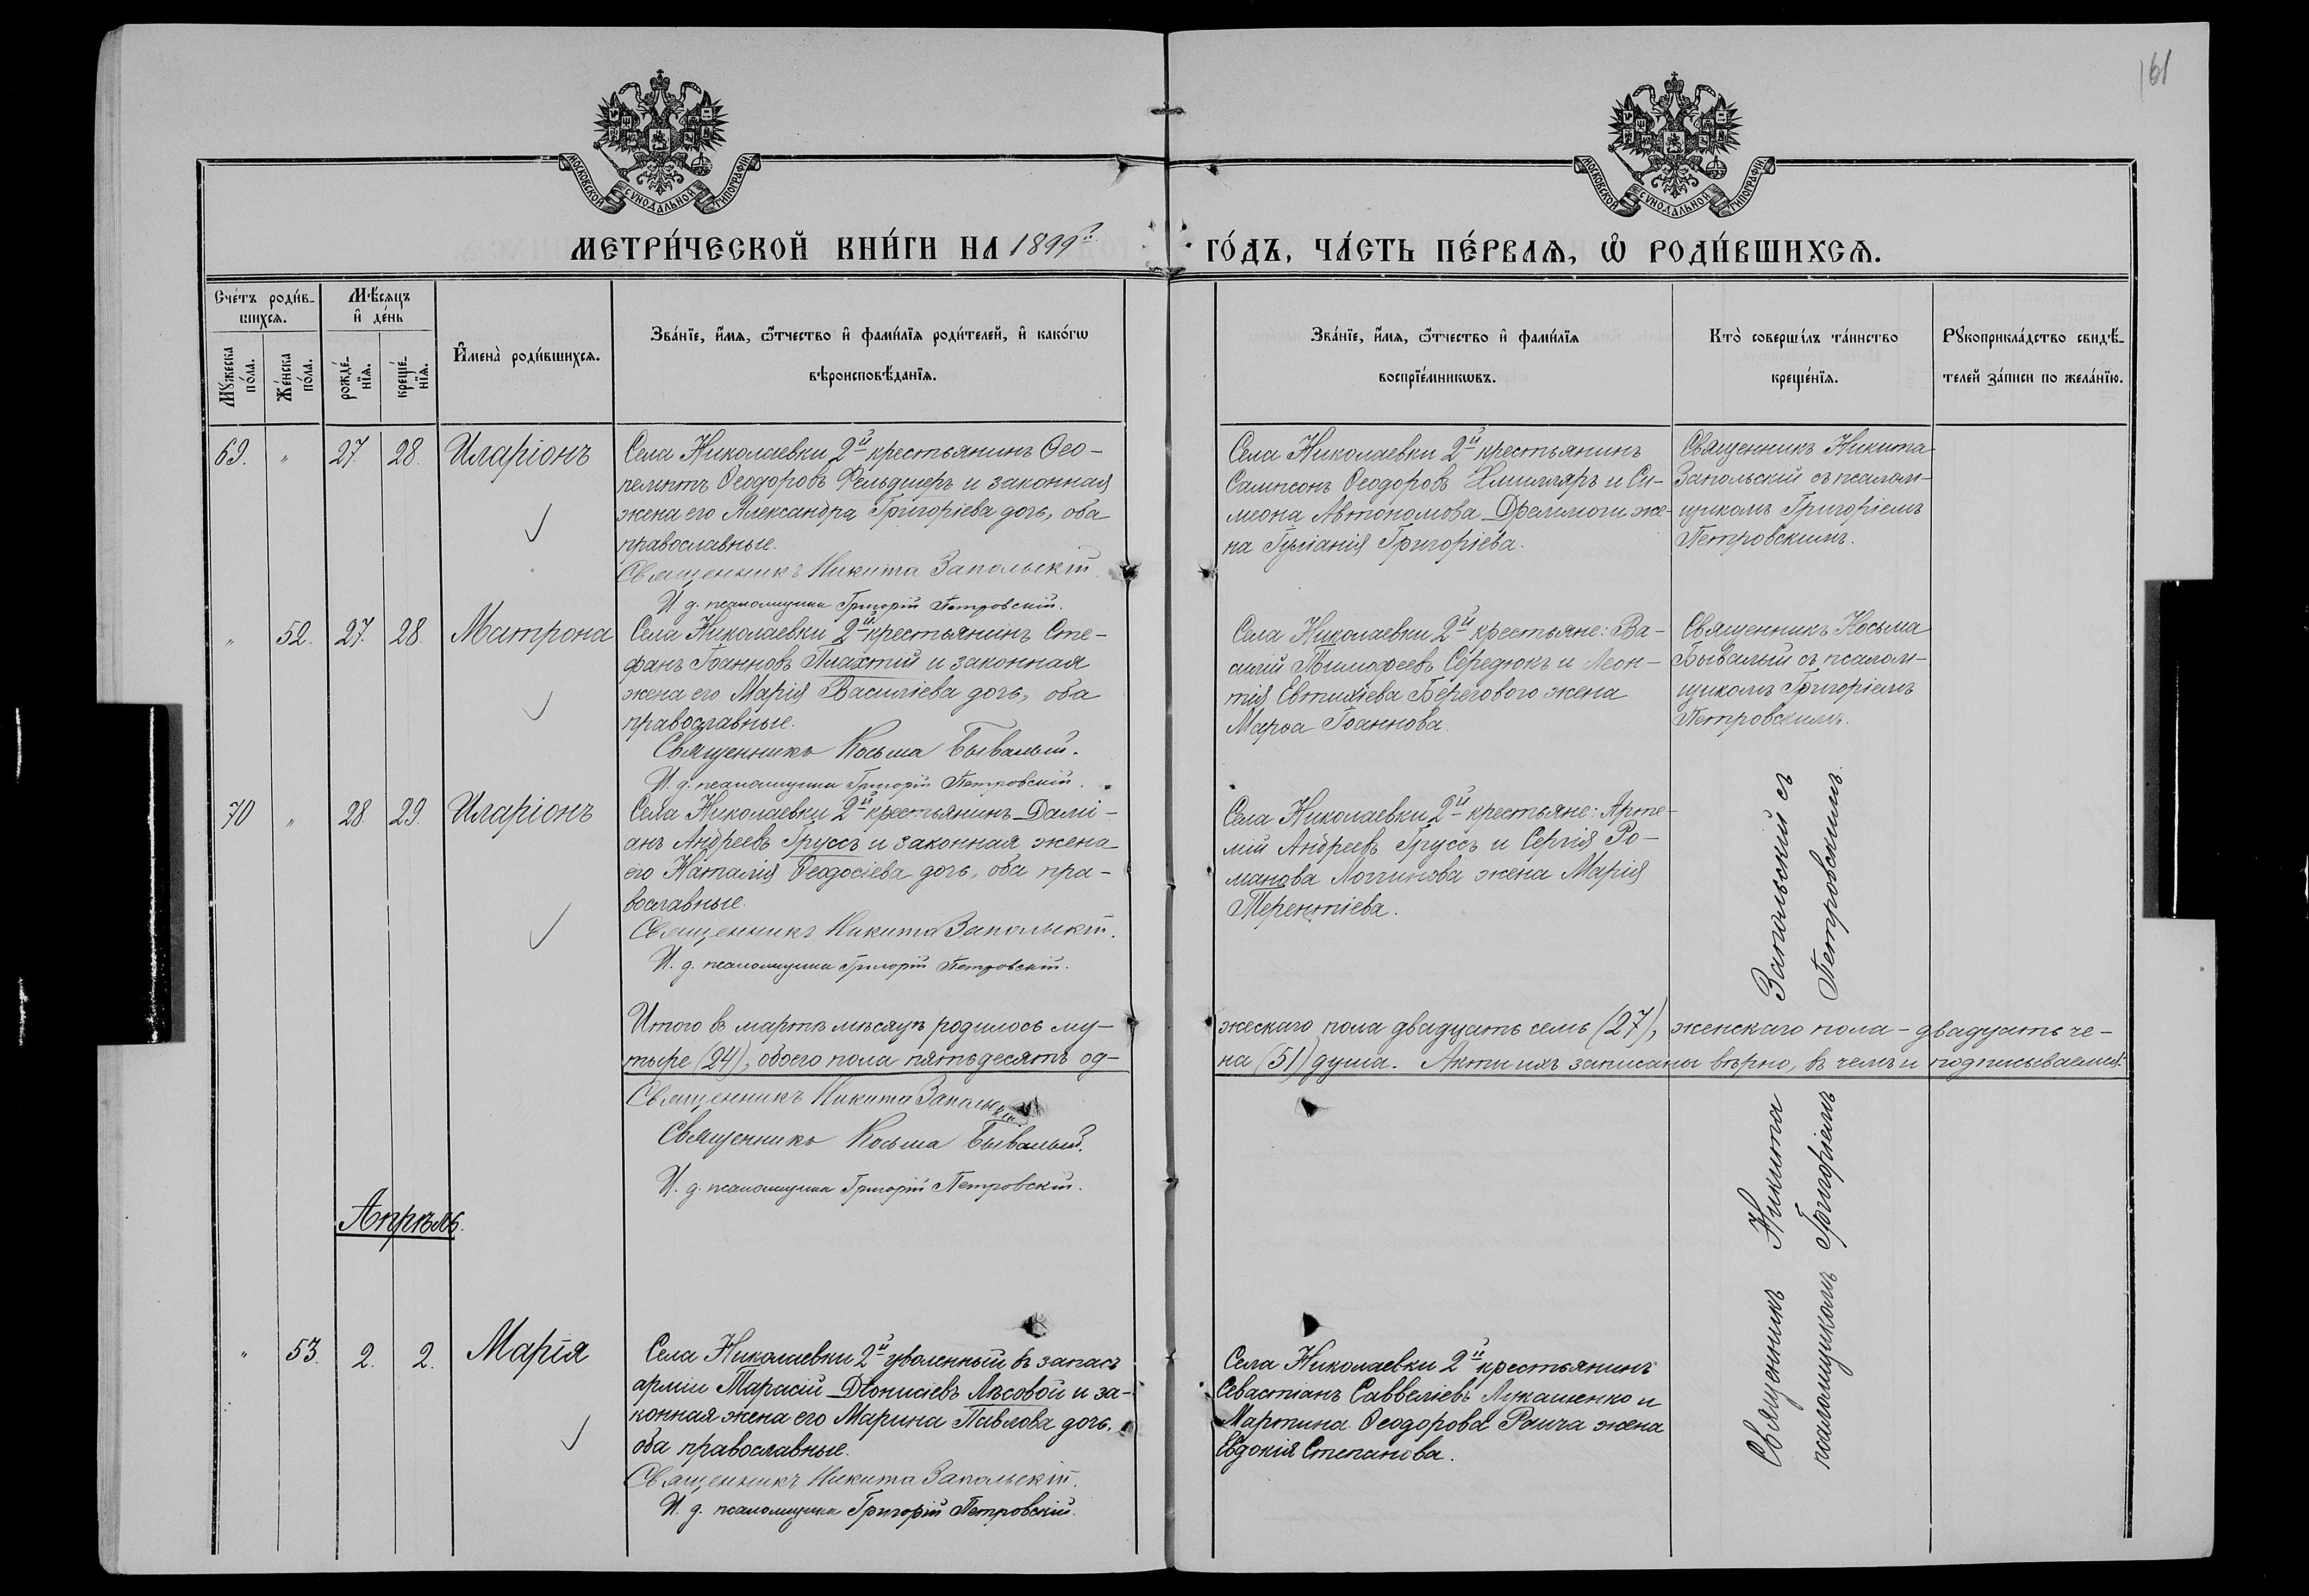 161
МОСКОВСКОЙ СѴНОДАЛЬНОЙ ТИПОГРАФІИ
МОСКОВСКОЙ СѴНОДАЛЬНОЙ ТИПОГРАФІИ
МЕТРИ́ЧЕСКОЙ КНИ́ГИ НА 1899й
ГО́ДЪ, ЧА́СТЬ ПЕ́РВАЯ, Ѽ РОДИ́ВШИХСЯ.
Счéтъ роди́в-
шихся.
Мужеска
по́ла.
Же́нска
по́ла.
Мѣ́сяцъ
и҆ де́нь
рожде́-
нїя.
креще́-
нїя.
И҆мена̀ роди́вшихся.
Зва́нїе, и҆́мя, ѻ҆́тчество и҆ фами́лїя роди́телей, и҆ како́гѡ
вѣроисповѣ́данїя.
Зва́нїе, и҆́мя, ѻ҆́тчество и҆ фами́лїя
воспрїе́мникѡвъ.
Кто̀ соверши́лъ та́инство
креще́нїя.
Рꙋкоприкла́дство свидѣ́-
телей за́писи по жела́нїю.
69. " 27. 28. Иларіонъ
Села Николаевки 2й крестьянинъ Ѳео-
пемптъ Ѳеодоровъ Фельдшеръ и законная
жена его Александра Григоріева дочь, оба
православные.
Священникъ Никита Запольскій
И. д. псаломщика Григорій Петровскій.
Села Николаевки 2й крестьянинъ
Сампсонъ Ѳеодоровъ и Си-
меона Автономова же-
на Григоріева.
Священникъ Никита
Запольскій съ псалом-
щикомъ Григоріемъ
Петровскимъ.
" 52. 27. 28. Матрона
Села Николаевки 2й крестьянинъ Сте-
фанъ Іоанновъ Плахтій и законная
жена его Марія Василіева дочь, оба
православные.
Священникъ Косьма Бывалый.
И. д. псаломщика Григорій Петровскій.
Села Николаевки 2й крестьяне: Ва-
силій Тимоѳеевъ Середюкъ и Леон-
тія Евтихіева Берегового жена
Марѳа Іоаннова.
Священникъ Косьма
Бывалый съ псалом-
щикомъ Григоріемъ
Петровскимъ.
70 " 28. 29. Иларіонъ
Села Николаевки 2й крестьянинъ Даміанъ
анъ Андреевъ Груссъ и законная жена
его Наталія Ѳеодосіева дочь, оба пра-
вославные.
Священникъ Никита Запольскій.
И. д. псаломщика Григорій Петровскій.
Села Николаевки 2й крестьяне: Арте-
мій Андреевъ Груссъ и Сергія Ро-
манова Логгинова жена Марія
Терентіева.
Итого въ мартѣ мѣсяцѣ родилось му-
жескаго пола двадцать семь (27), женскаго пола - двадцать че-
тыре (24), обоего пола пятьдесятъ од-
на (51) душа. Акты ихъ записаны вѣрно, въ чемъ и подписываемся:
Священникъ Никита Запольскій
Священникъ Косьма Бывалый.
И. д. псаломщика Григорій Петровскій.
Апрѣль.
" 53. 2. 2. Марія
Села Николаевки 2й уволенный въ запасъ
арміи Тарасій Діонисіевъ Лѣсовой и за-
конная жена его Марина Павлова дочь,
оба православные.
Священникъ Никита Запольскій.
И. д. псаломщика Григорій Петровскій.
Села Николаевки 2й крестьянинъ
Севастіанъ Савеліевъ Лукашенко и
Мартина Ѳеодорова Раича жена
Евдокія Степанова.
Священникъ Никита Запольскій съ
псаломщикомъ Григоріемъ Петровскимъ.